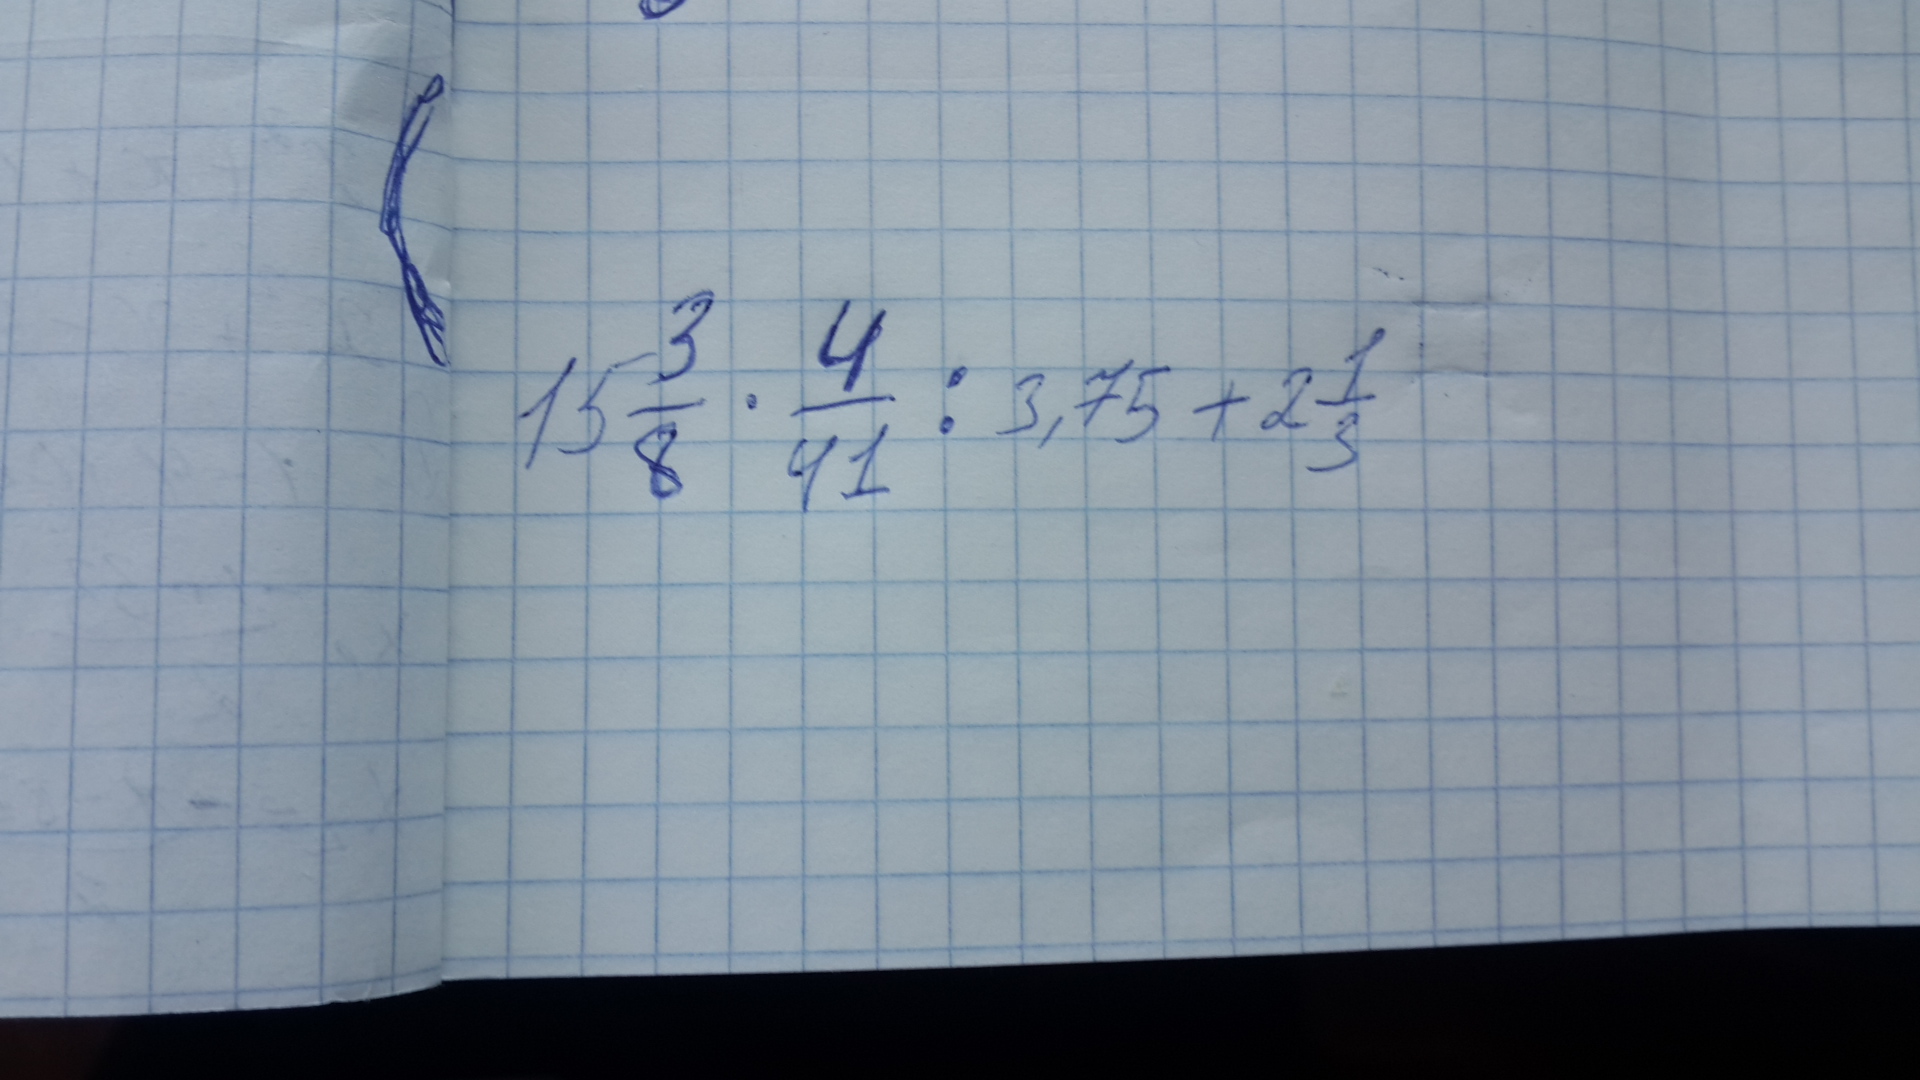 15 3/8 · 4/41 : 3,75 + 2 1/3